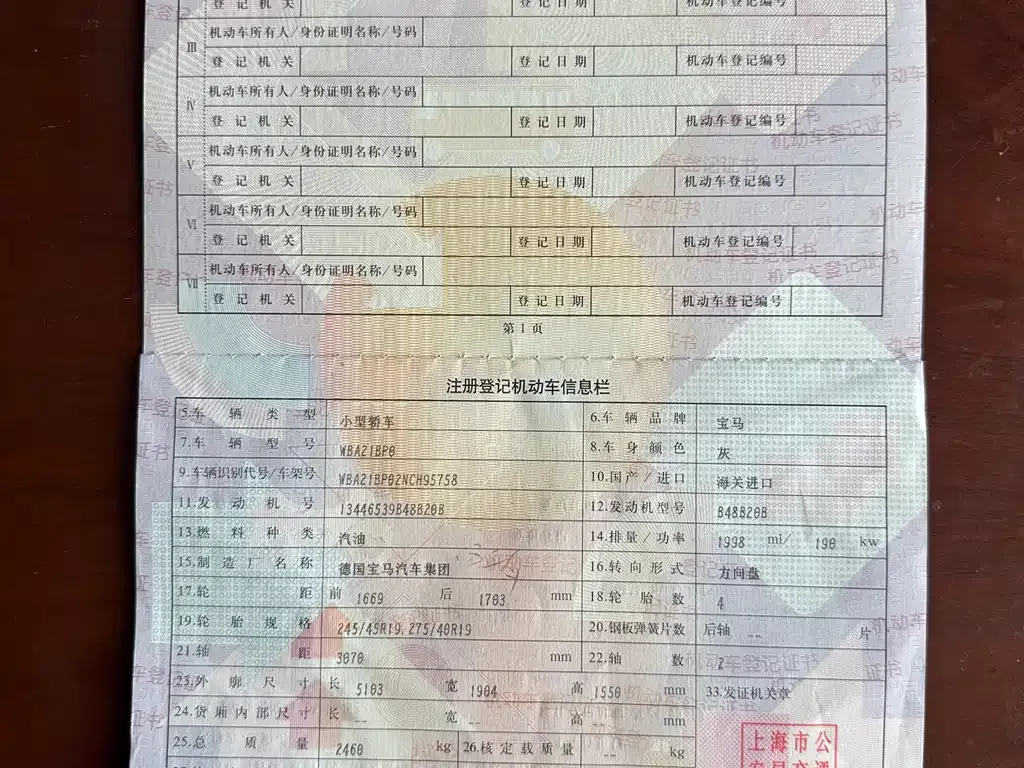 登记机关 登记日期 机动车登记编号
III 机动车所有人/身份证明名称/号码
登记机关 登记日期 机动车登记编号
IV 机动车所有人/身份证明名称/号码
登记机关 登记日期 机动车登记编号
V 机动车所有人/身份证明名称/号码
登记机关 登记日期 机动车登记编号
VI 机动车所有人/身份证明名称/号码
登记机关 登记日期 机动车登记编号
VII 机动车所有人/身份证明名称/号码
登记机关 登记日期 机动车登记编号
第1页
注册登记机动车信息栏
5.车辆类型 小型轿车 6.车辆品牌 宝马
7.车辆型号 WBA21BP0 8.车身颜色 灰
9.车辆识别代号/车架号 WBA21BP02NCH95758 10.国产/进口 海关进口
11.发动机号 13446539B48B20B 12.发动机型号 B48B20B
13.燃料种类 汽油 14.排量/功率 1998 ml/ 190 kw
15.制造厂名称 德国宝马汽车集团 16.转向形式 方向盘
17.轮距 前 1669 后 1703 mm 18.轮胎数 4
19.轮胎规格 245/45R19,275/40R19 20.钢板弹簧片数 后轴 -- 片
21.轴距 3070 mm 22.轴数 2
23.外廓尺寸 长 5103 宽 1904 高 1550 mm 33.发证机关章
24.货厢内部尺寸 长 -- 宽 -- 高 -- mm
25.总质量 2460 kg 26.核定载质量 -- kg
上海市公